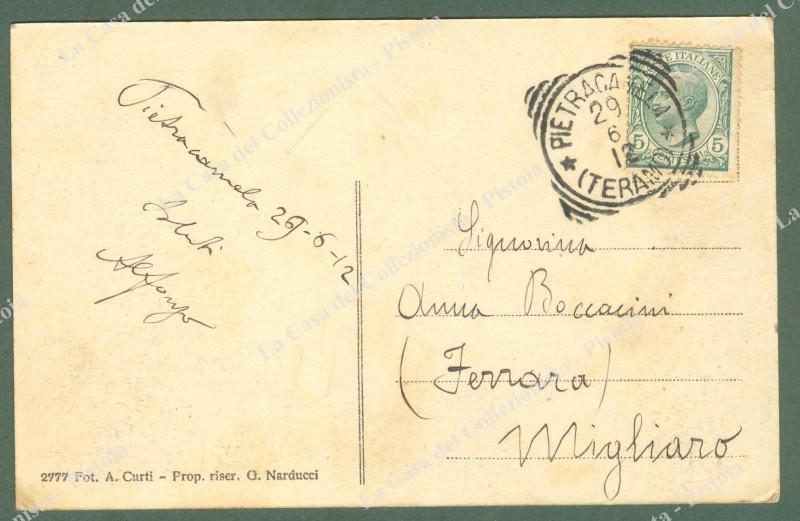 Pietracamela 29-6-12
Saluti
Alfonso
PIETRACAMELA
29
6
12
(TERAMO)
POSTE ITALIANE
5 5
Signorina
Anna Boccacini
(Ferrara)
Migliaro
2777 Fot. A. Curti - Prop. riser. G. Narducci
La Casa del Collezionista - Pistoia